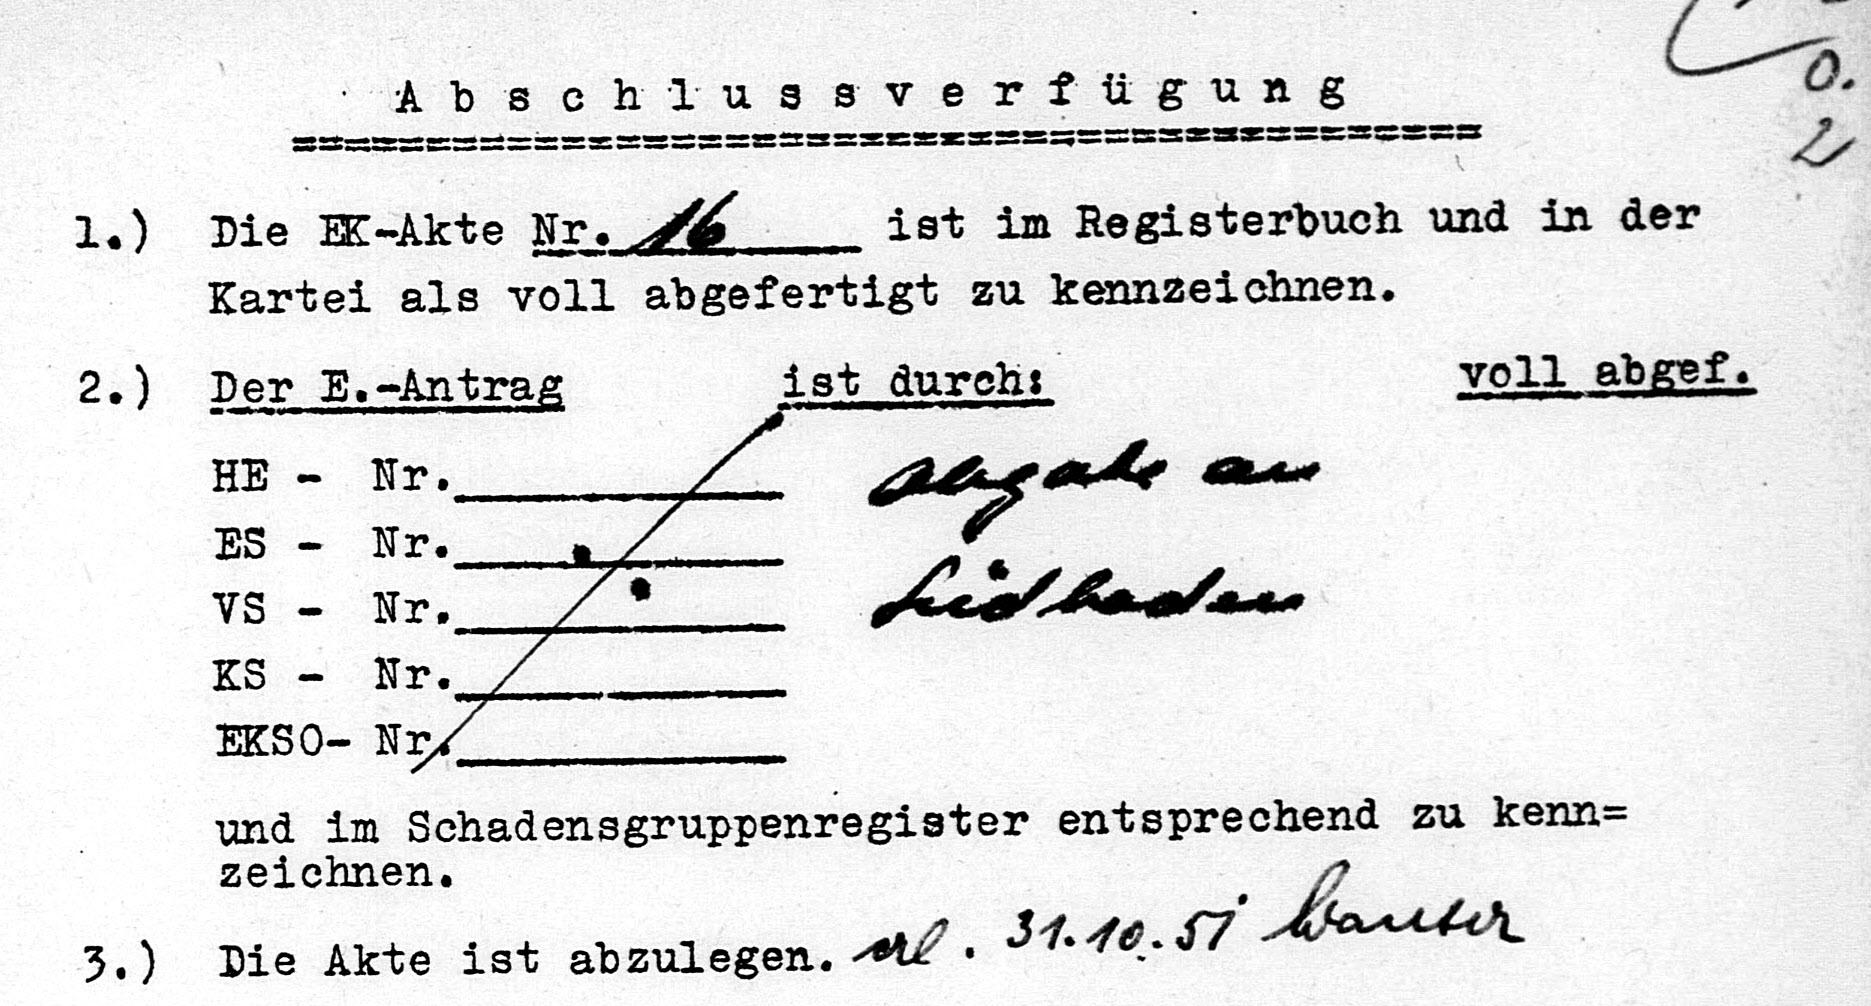 0.
2
Abschlussverfügung
1.) Die EK-Akte Nr. 16 ist im Registerbuch und in der
Kartei als voll abgefertigt zu kennzeichnen.
2.) Der E.-Antrag ist durch: voll abgef.
HE - Nr. Abgabe an
ES - Nr.
VS - Nr. Südbaden
KS - Nr.
EKSO- Nr.
und im Schadensgruppenregister entsprechend zu kenn=
zeichnen.
3.) Die Akte ist abzulegen. erl. 31.10.51